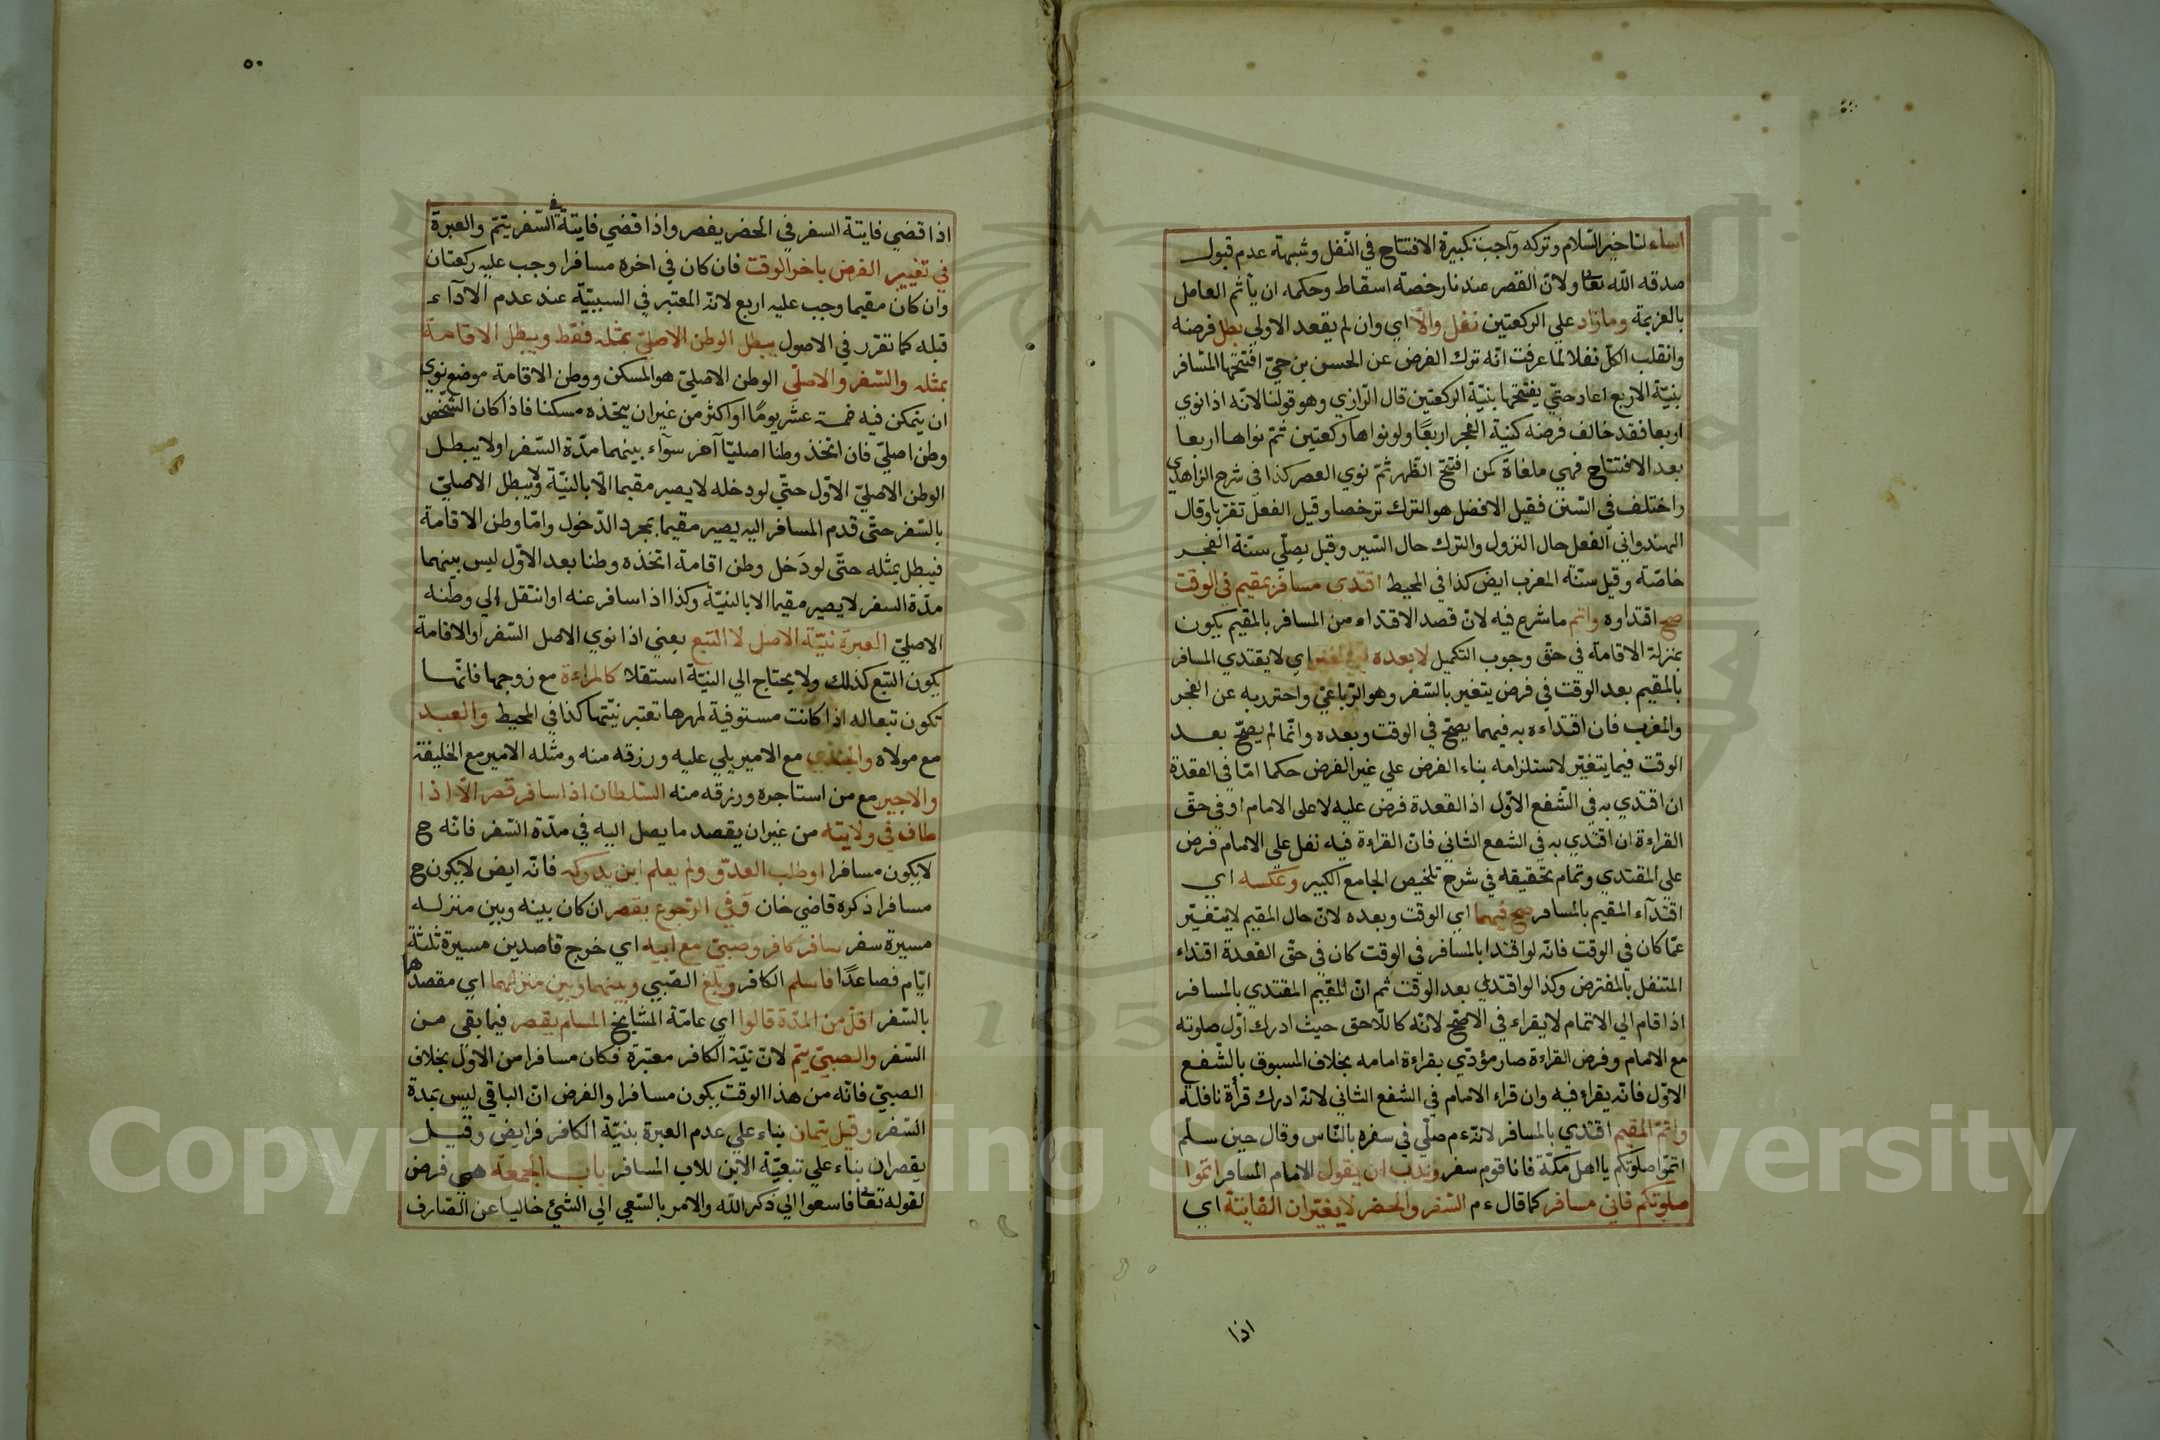 اساء لتاخير السلام وتركه واجب تكبيرة الافتتاح في النفل وشبهة عدم قبول
صدقه الله تعا ولان القصر عندنا رخصة اسقاط وحكمه ان ياثم العامل
بالعزيمة ومازاد علي الركعتين نفل والا اي وان لم يقعد الاولي بطل فرضه
وانقلب الكل نفلا لما عرفت انه ترك الفرض عن الحسن بن حيّ افتتحها المسافر
بنيّة الاربع اعاد حتي يفتتحها بنيّة الركعتين قال الرازي وهو قولنا لانه اذا نوي
اربعا فقد خالف فرضه كنية الفجر اربعًا ولو نواها ركعتين ثم نواها اربعا
بعد الافتتاح فهي ملغاة كمن افتتح الظهر ثم نوي العصر كذا في شرح الزاهدي
واختلف في السنن فقيل الافضل هو الترك ترخصا وقيل الفعل تقربا وقال
الهندواني الفعل حال النزول والترك حال السير وقيل يصلّي سنّة الفجر
خاصّة وقيل سنّة المغرب ايض كذا في المحيط اقتدي مسافر بمقيم في الوقت
صح اقتداوه واتم ما شرع فيه لان قصد الاقتداء من المسافر بالمقيم يكون
بمنزلة الاقامة في حق وجوب التكميل لا بعده فيما يتغير اي لا يقتدي المسافر
بالمقيم بعد الوقت في فرض يتغير بالسّفر وهو الرّباعيّ واحترز به عن الفجر
والمغرب فان اقتداءه به فيهما يصحّ في الوقت وبعده وانّما لم يصحّ بعد
الوقت فيما يتغيّر لاستلزامه بناء الفرض علي غير الفرض حكما امّا في القعدة
ان اقتدي به في الشّفع الاوّل اذ القعدة فرض عليه لا على الامام او في حقّ
القراءة ان اقتدي به في الشفع الثاني فانّ القراءة فيه نفل علي الامام فرض
علي المقتدي وتمام تحقيقه في شرح تلخيص الجامع الكبير وعكسه اي
اقتدآء المقيم بالمسافر صح فيهما اي الوقت وبعده لان حال المقيم لا يتغيّر
عمّا كان في الوقت فانّه لو اقتدا بالمسافر في الوقت كان في حقّ القعدة اقتداء
المتنفل بالمفترض وكذا لو اقتدي بعد الوقت ثم انّ المقيم المقتدي بالمسافر
اذا قام الي الاتمام لا يقراء في الاصحّ لانه كاللّاحق حيث ادرك اوّل صلوته
مع الامام وفرض القراءة صار مؤدّي بقراءة امامه بخلاف المسبوق بالشّفع
الاوّل فانّه يقراء فيه وان قراء الامام في الشفع الثاني لانّه ادرك قرأة نافلة
واتمّ المقيم اقتدي بالمسافر لانّه ءم صلّي في سفره بالنّاس وقال حين سلّم
اتمّوا صلوتكم يا اهل مكّة فانا قوم سفر وندب ان يقول الامام المسافر اتموا
صلوتكم فاني مسافر كما قال ءم السّفر والحضر لا يغيّران الفايتة اي
اذا
٥٠
اذا قضي فايتة السفر في الحضر يقصر واذا قضي فايتة السّفر يتمّ والعبرة
في تغيير الفرض باخر الوقت فان كان في اخره مسافرا وجب عليه ركعتان
وان كان مقيما وجب عليه اربع لانّه المعتبر في السببيّة عند عدم الادآء
قبله كما تقرّر في الاصول يبطل الوطن الاصليّ بمثله فقط ويبطل الاقامة
بمثله والسّفر والاصلي الوطن الاصليّ هو المسكن ووطن الاقامة موضع نوي
ان يتمكن فيه خمسة عشر يومًا او اكثر من غير ان يتّخذه مسكنا فاذا كان الشّخص
وطن اصليّ فان اتّخذ وطنا اصليّا آخر سوآء بينهما مدّة السّفر اولا يبطل
الوطن الاصليّ الاوّل حتّي لو دخله لا يصير مقيما الا بالنيّة ولا يبطل الاصليّ
بالسّفر حتّي قدم المسافر اليه يصير مقيما بمجرد الدّخول وامّا وطن الاقامة
فيبطل بمثله حتّى لو دَخل وطن اقامة اتخذه وطنا بعد الاوّل ليس بينهما
مدّة السفر لا يصير مقيما الا بالنيّة وكذا اذا سافر عنه او انتقل الي وطنه
الاصليّ العبرة نيّة الاصل لا التبع يعني اذا نوي الاصل السّفر او الاقامة
يكون التبع كذلك ولا يحتاج الي النيّة استقلالا كالمراءة مع زوجها فانّها
تكون تبعا له اذا كانت مستوفية لمهرها تعتبر نيّتها كذا في المحيط والعبد
مع مولاه والجندي مع الامير يلي عليه ورزقه منه ومثله الامير مع الخليفة
والاجير مع من استاجره ورزقه منه السّلطان اذا سافر قصر الّا اذا
طاف في ولايته من غير ان يقصد ما يصل اليه في مدّة السّفر فانّه ح
لا يكون مسافرا او طلب العدوّ ولم يعلم اين يدركه فانّه ايض لا يكون ح
مسافرا ذكره قاضي خان وفي الرّجوع يقصر ان كان بينه وبين منزله
مسيرة سفر سافر كافر وصبيّ مع ابيه اي خرج قاصدين مسيرة ثلثة
ايّام فصاعدًا فاسلم الكافر وبلغ الصّبي وبينهما وبين منزلهما اي مقصدهما
بالسّفر اقلّ من المدّة قالوا اي عامّة المشايخ المسلم يقصر فيما بقي من
السّفر والصبيّ يتمّ لانّ نيّة الكافر معتبرة فكان مسافرا من الاوّل بخلاف
الصبيّ فانّه من هذا الوقت يكون مسافرا والفرض انّ الباقي ليس بمدة
السّفر وقيل يتمان بناء علي عدم العبرة بنيّة الكافر فرايض وقيل
يقصران بناء علي تبعيّة الابن للاب المسافر باب الجمعة هي فرض
لقوله تعا فاسعوا الي ذكر الله والامر بالسّعي الي الشيئ خاليا عن الصّارف
Copyright © King Saud University